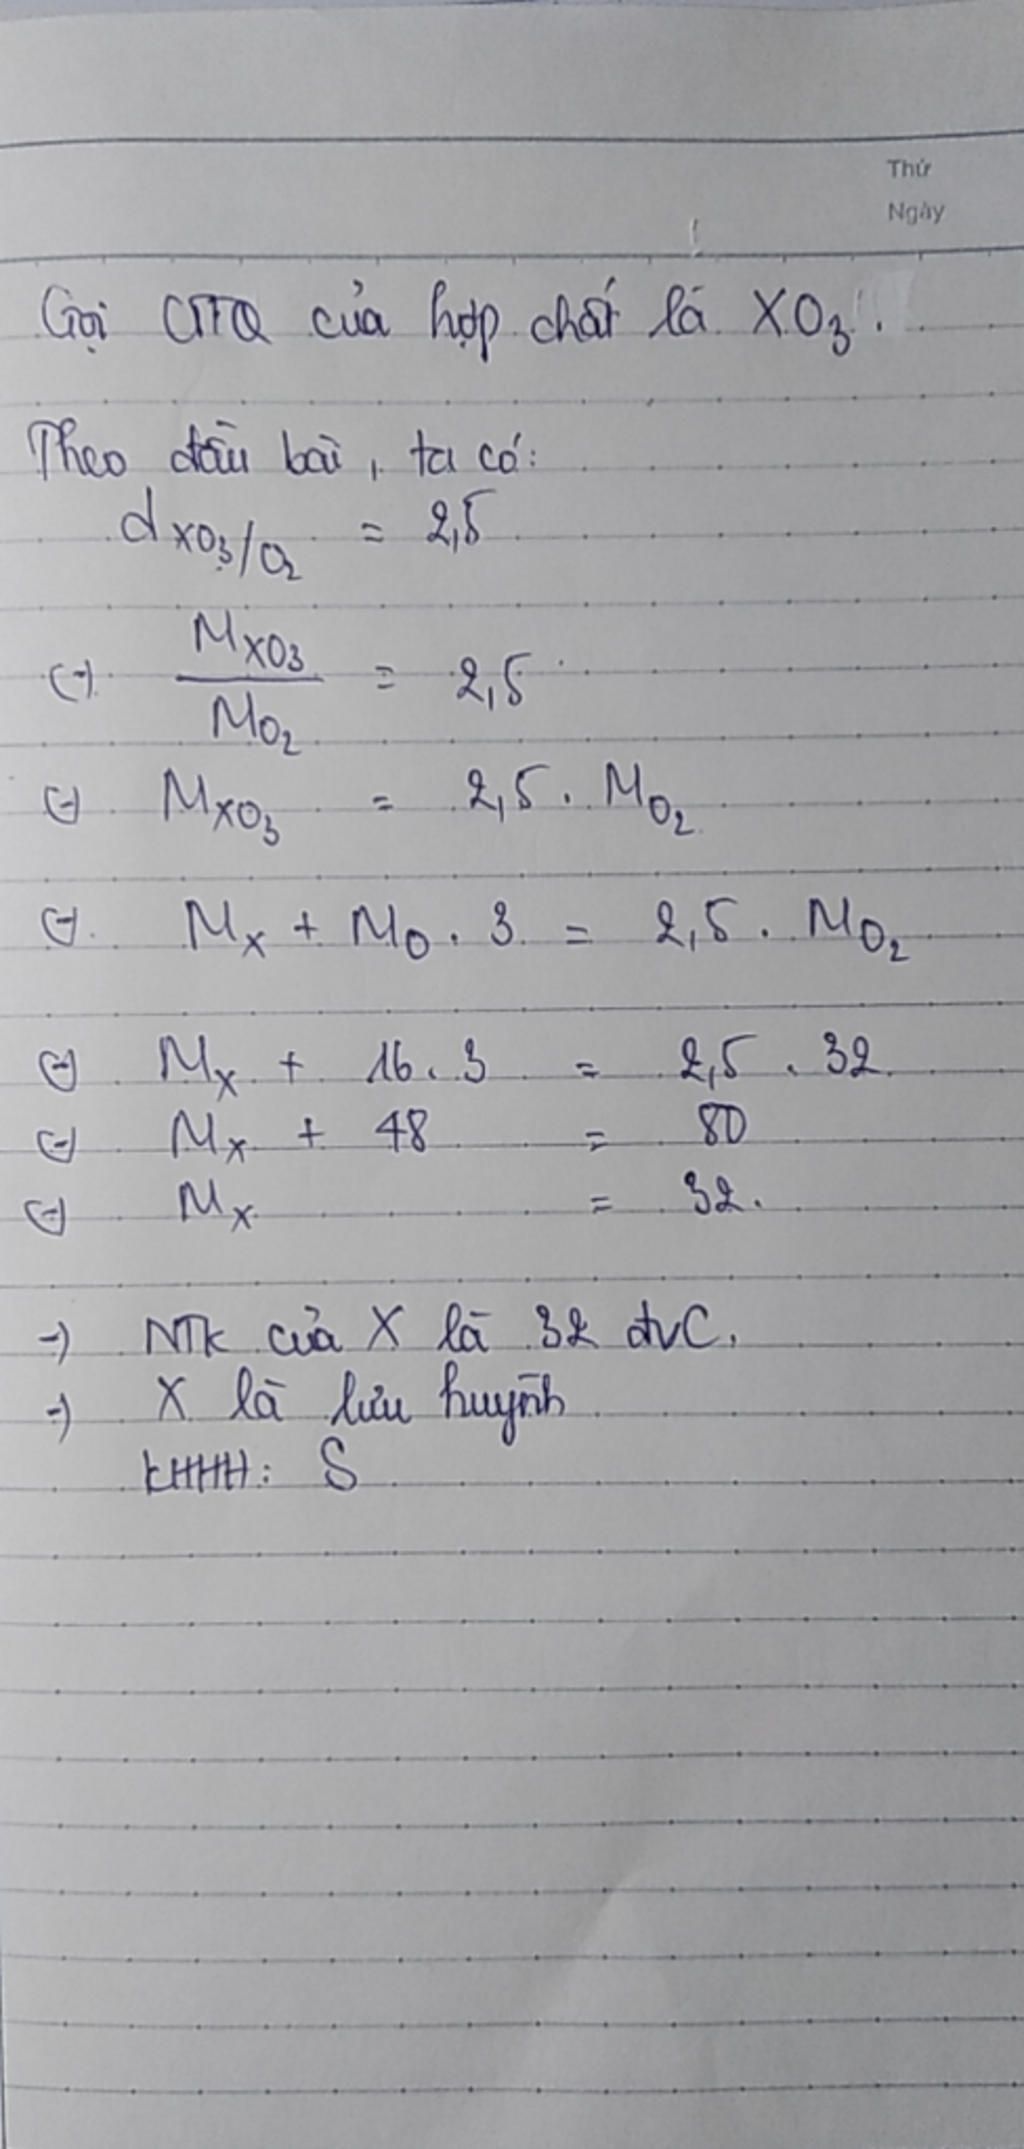 Thứ
Ngày
Gọi CTTQ của hợp chất là XO₃.
Theo đầu bài, ta có:
d XO₃/O₂ = 2,5
(-) M XO₃ / M O₂ = 2,5
(-) M XO₃ = 2,5 . M O₂
(-) Mₓ + M O . 3 = 2,5 . M O₂
(-) Mₓ + 16 . 3 = 2,5 . 32
(-) Mₓ + 48 = 80
(-) Mₓ = 32.
-) NTK của X là 32 đvC.
-) X là lưu huỳnh
KHHH: S